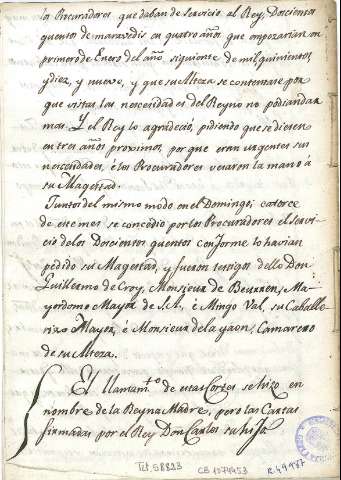 los Procuradores que daban de servicio al Rey, Doscientos
quentos de maravedis en quatro años que empezarian en
primero de Enero del año siguiente de mil quinientos
y diez, y nueve, y que su Alteza se contentase por
que vistas las necesidades del Reyno no podian dar
mas. Y el Rey lo agradeció, pidiendo que se diesen
en tres años proximos, por que eran urgentes sus
necesidades, é los Procuradores vesaron la mano á
su Magestad.
Juntos del mismo modo en el Domingo, catorce
de este mes se concedio por los Procuradores el servi
cio de los Doscientos quentos conforme lo havian
pedido su Magestad, y fueron testigos dello Don
Guillermo de Croy, Monsieur de Beurren, Ma-
yordomo Mayor de S.A. é Mingo Val, su Caballe-
rizo Mayor, é Monsieur de la yaon, Camarero
de su Alteza.
El llamam.to de estas Cortes se hizo en
nombre de la Reyna Madre, pero las Cartas
firmadas por el Rey Don Carlos su hijo
Tit. 58823 CB 1079953 R.49987